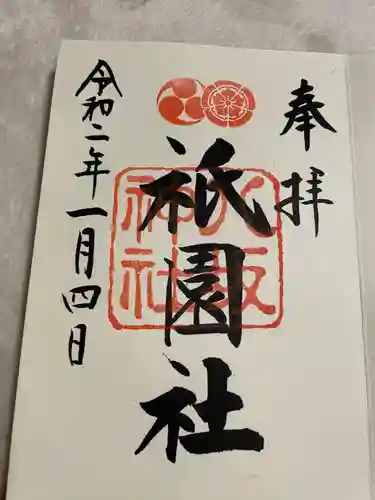 奉拝
八坂神社
祇園社
令和二年一月四日